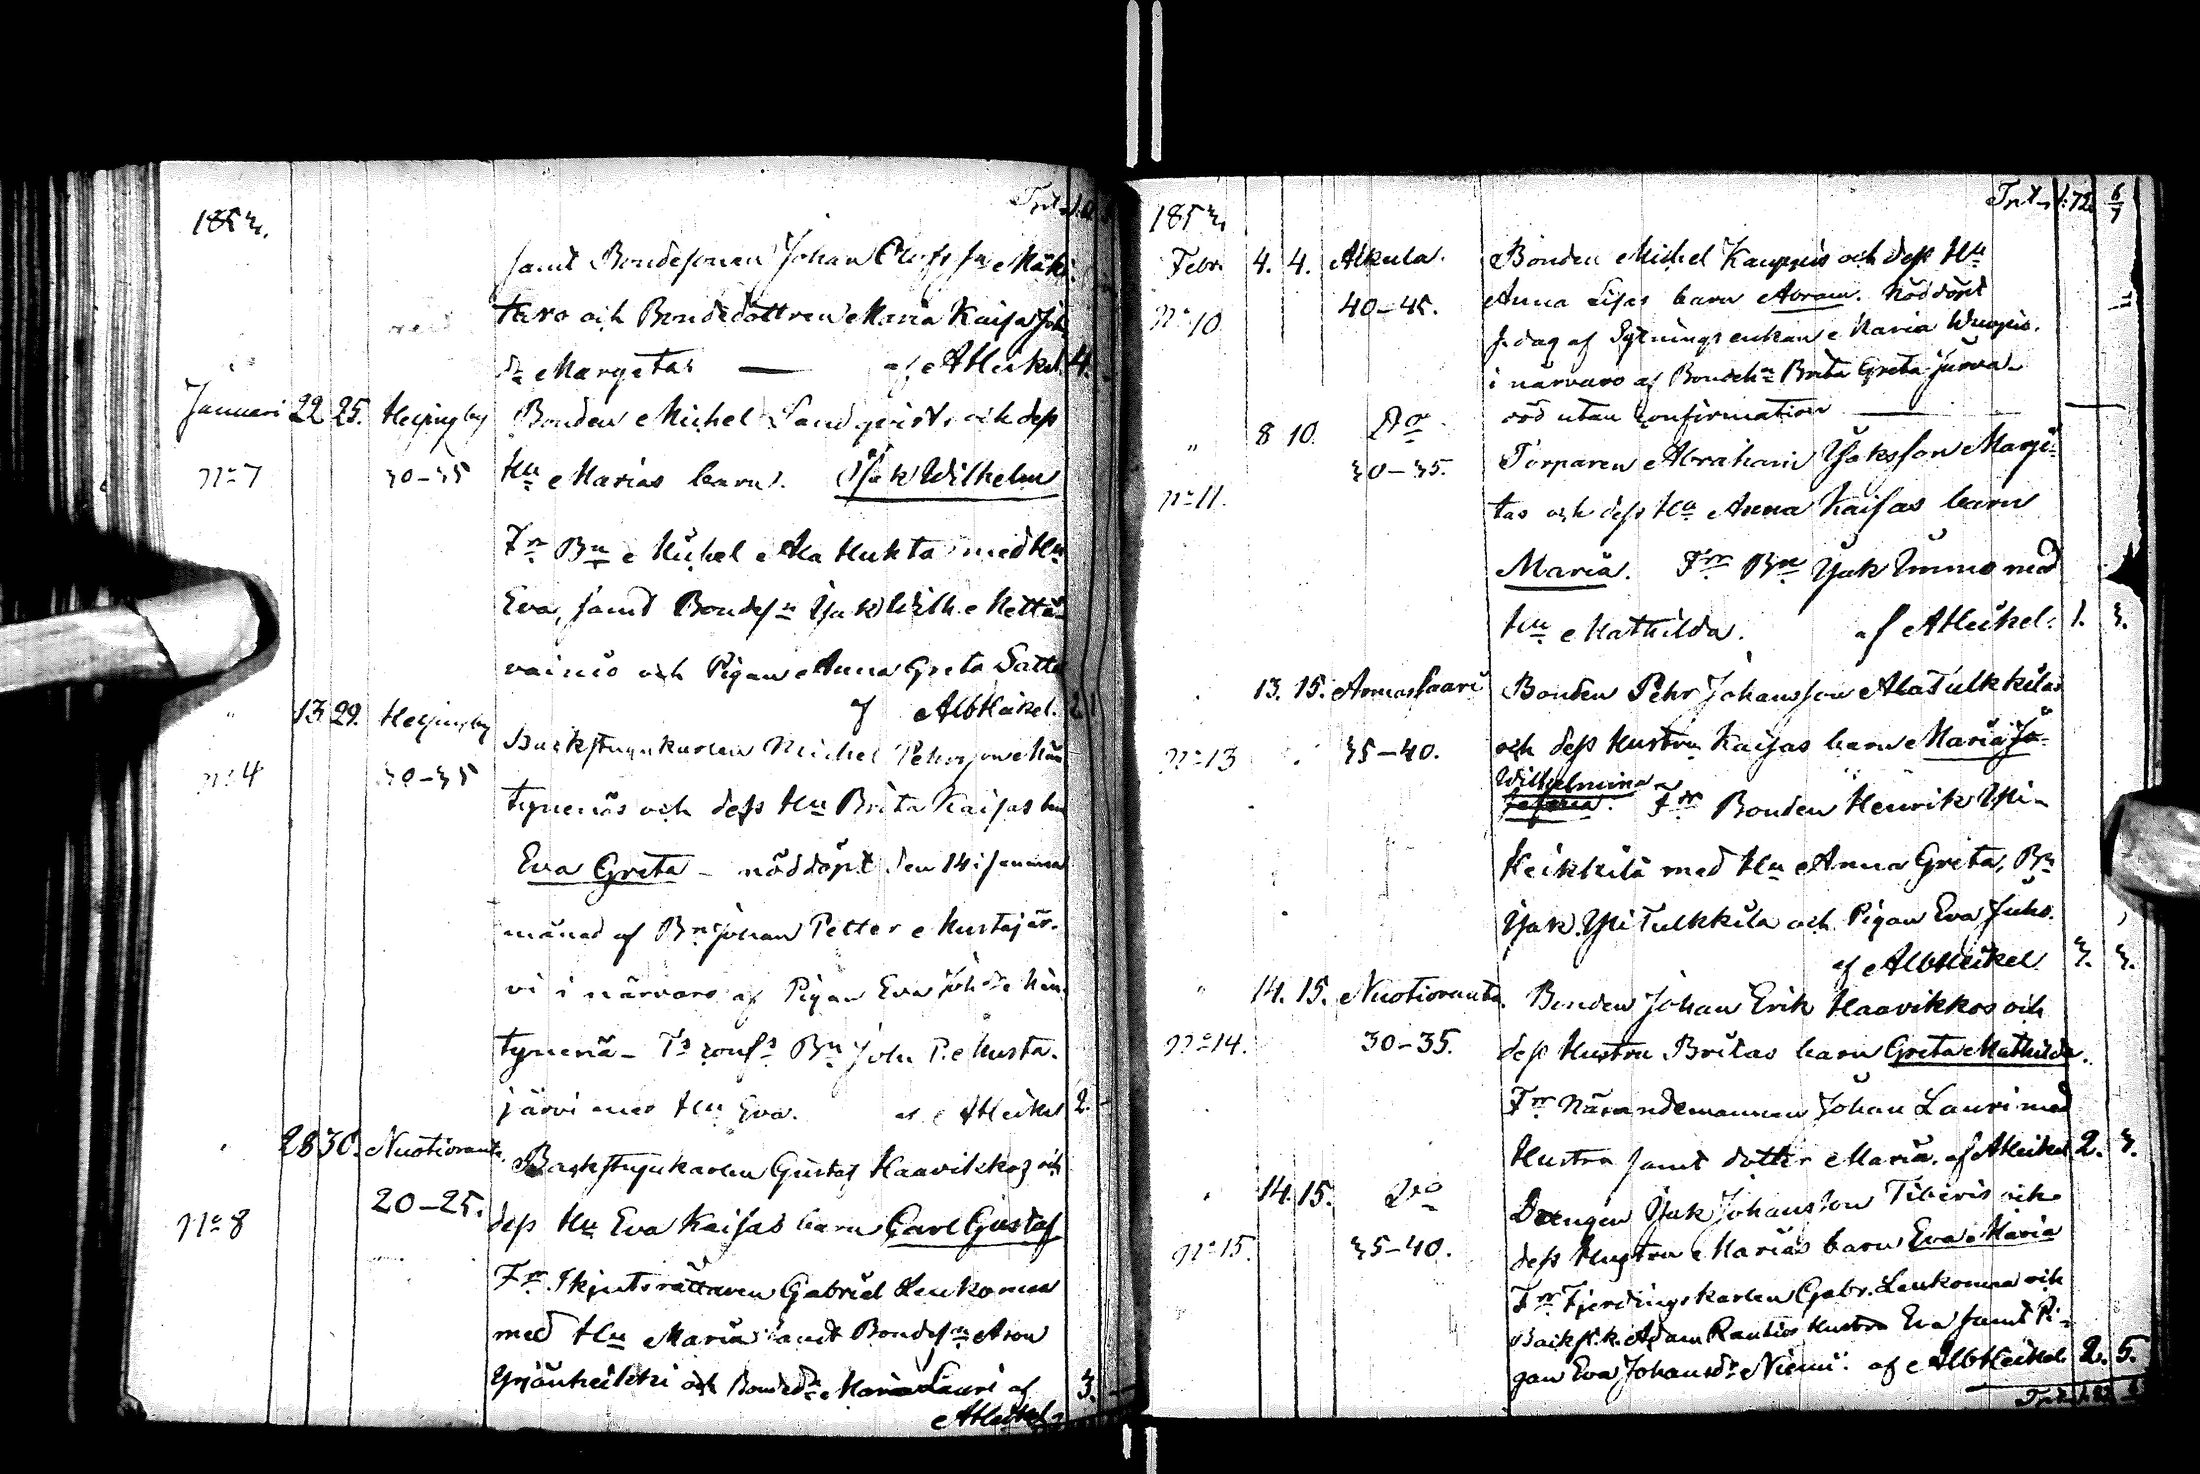 1853.
Trt
samt Bondesonen Johan Olofsson Mäki
taro och Bondedottren Maria Kaisa Joh
dr Margetas — af AHeikel. 4.
Januari 22 25. Helsingby Bonden Michel Landqvists och dess
No 7 30-35 Hu Marias barn. Isak Wilhelm
Fr Bn Michel Ala Huhta med Hu
Eva, samt Bondesn Isak Wilh. Kettu
vainio och Pigan Anna Greta Latta
af AlbHeikel. 21
" 13 29. Helsingby Backstugukarlen Michel Pehrsson Män
No 4 30-35 tynenäs och dess Hu Brita Kaisas bn
Eva Greta - nöddöpt den 14 i samma
månad af Bn Johan Petter Mustajär-
vi i närvaro af Pigan Eva Joh dr Män
tynenä - Ts conf: Bn Joh P. Musta-
järvi med Hu Eva. af AHeikel 2.
" 28 30. Nuotioranta Backstugukarlen Gustaf Haavikkos och
No 8 20-25. dess Hu Eva Kaisas barn Carl Gustaf
Fr. Skjutsrättaren Gabriel Leukomaa
med Hu Maria samt Bondesn Aron
Yrjänheikki och Bondedr Maria Lauri af
AHeikel 3.
1853.
Trt 1:72. 6/7
Febr. 4. 4. Alkula. Bonden Michel Kauppis och dess Hu
No 10. 40-45. Anna Lisas barn Abram. Nöddöpt
s. dag af Sytningsenkan Maria
i närvaro af Bondeh Brita Greta Jurva.
död utan confirmation —
" 8 10. Do Torparen Abraham Isaksson Marje-
No 11. 30-35. tas och dess Hu Anna Kaisas barn
Maria. Frr Bn Isak Immo med
Hu Mathilda. af AHeikel. 1. 3.
13. 15. Armassaari Bonden Pehr Johansson Ala Tulkkilas
No 13 35-40. och dess hustru Kaisas barn Maria Jo-
Wilhelmina
sefina. Frr Bonden Henrik Yli-
Heikkilä med Hu Anna Greta, Bn
Isak Yli Tulkkila och Pigan Eva Juho.
af AlbHeikel. 3. 3.
" 14. 15. Nuotioranta. Bonden Johan Erik Haavikkos och
No 14. 30-35. dess Hustru Britas barn Greta Mathilda.
Frr Nämndemannen Johan Lauri med
Hustru samt dotter Maria. af AHeikel 2. 3.
" 14. 15. Do Drengen Isak Johansson Tiberis och
No 15. 35-40. dess Hustru Marias barn Eva Maria
Frr Fjerdingskarlen Gabr. Leukomaa och
Backst.k. Adam Rantios Hustru Eva samt Pi-
gan Eva Johansdr Niemi. af AlbHeikel. 2. 5.
Trt